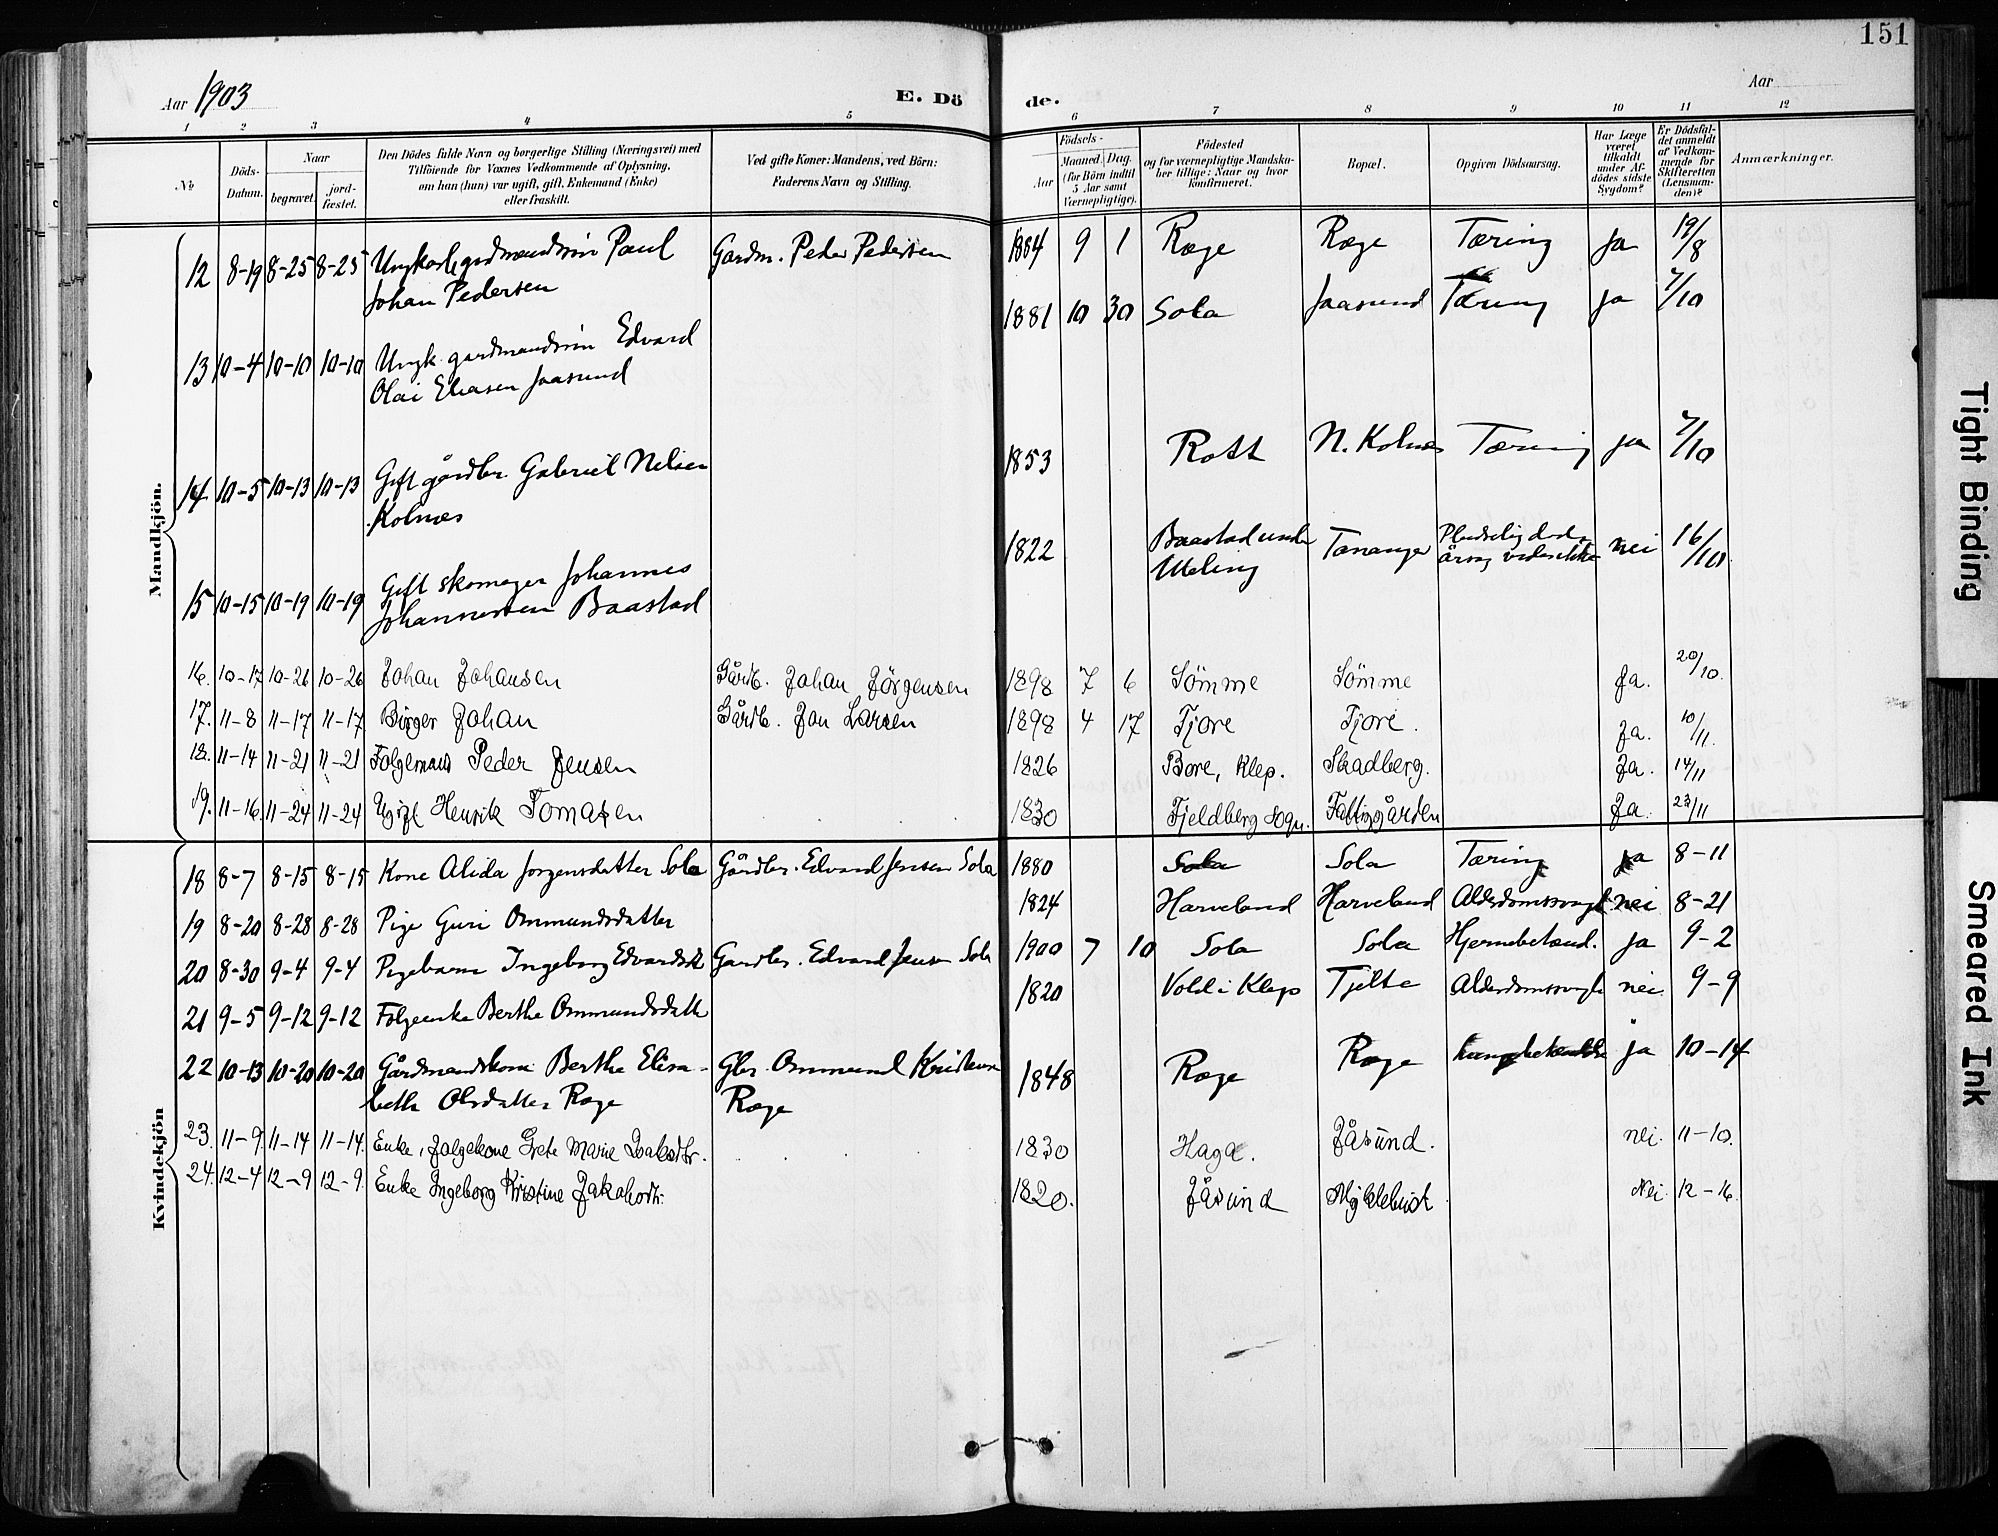 151
Aar 1903
E. Dö
de.
Aar
1 2 3 4 5 6 7 8 9 10 11 12
No
Döds-Datum.
Naar
begravet.
jord-fæstet.
Den Dödes fulde Navn og borgerlige Stilling (Næringsvei) med
Tilföiende for Voxnes Vedkommende af Oplysning,
om han (hun) var ugift, gift, Enkemand (Enke)
eller fraskilt.
Ved gifte Koner: Mandens, ved Börn:
Faderens Navn og Stilling.
Födsels-
Aar
Maaned. Dag.
(for Börn indtil
5 Aar samt
Værnepligtige).
Födested
og for værnepligtige Mandska-
ber tillige: Naar og hvor
konfirmeret.
Bopæl.
Opgiven Dödsaarsag.
Har Læge
været
tilkaldt
under Af-
dödes sidste
Sygdom?
Er Dödsfal-
det anmeldt
af Vedkom-
mende for
Skifteretten
(Lensman-
den)?
Anmærkninger.
Mandkjön.
12 8-19 8-25 8-25 Ungkarl, gardmandssön Paul Gardm. Peder Pedersen 1884 9 1 Ræge Ræge Tæring Ja 19/8
Johan Pedersen
13 10-4 10-10 10-10 Ungk. gardmandssön Edvard 1881 10 30 Sola Jaasund Tæring ja 7/10
Olai Eliasen Jaasund
14 10-5 10-13 10-13 Gift gårdbr. Gabriel Nilsen 1853 Rott N. Kolnes Tæring ja 7/10
Kolnes
15 10-15 10-19 10-19 Gift skomager Johannes 1822 Baastad under Tananger Pludselig död, nei 16/10
Johannessen Baastad Meling årsag vides ikke
16. 10-17 10-26 10-26 Johan Johansen Gårdb. Johan Jörgensen 1898 7 6 Sömme Sömme Ja. 20/10.
17. 11-8 11-17 11-17 Birger Johan Gårdb. Jon Larsen 1898 4 17 Tjore Tjore. Ja. 10/11.
18. 11-14 11-21 11-21 Folgemand Peder Jensen 1826 Bore, Klep. Skadberg. Ja. 14/11
19. 11-16. 11-24 11-24 Ugift Henrik Tomasen 1830 Fjeldberg sogn. Fattiggården Ja. 23/11
Kvindekjön
18 8-7 8-15 8-15 Kone Alida Jorgensdatter Sola Gårdbr. Edvard Jensen Sola 1880 Sola Sola Tæring Ja 8-11
19 8-20 8-28 8-28 Pige Guri Ommundsdatter 1824 Harveland Harveland Alderdomssvagh. nei 8-21
20 8-30 9-4 9-4 Pigebarn Ingeborg Edvardsdt Gardbr. Edvard Jensen Sola 1900 7 10 Sola Sola Hjernebetænd. ja 9-2
21 9-5 9-12 9-12 Folgeenke Berthe Ommundsdatt 1820 Vold i Klep Tjelta Alderdomssvagh nei 9-9
22 10-13 10-20 10-20 Gårdmandskone Berthe Elisa- Gbr. Ommund Kristensen 1848 Ræge Ræge Lungebetændelse ja 10-14
beth Olsdatter Ræge Ræge
23. 11-9 11-14 11-14. Enke, folgekone Grete Marie Isaksdtr. 1830 Haga. Jåsund. nei. 11-10.
24. 12-4 12-9 12-9. Enke Ingeborg Kristine Jakobsdtr. 1820. Jåsund Myklebust Nei. 12-16.
Tight Binding
Smeared Ink